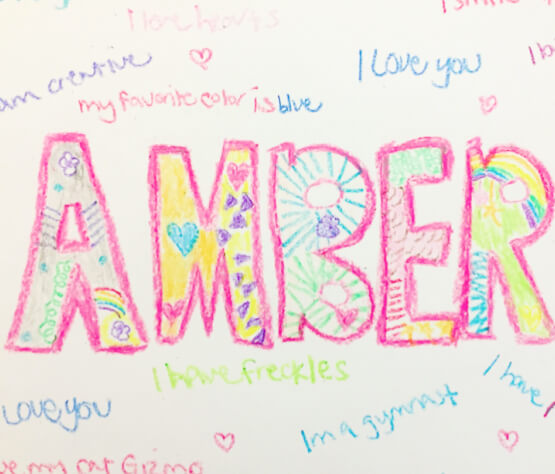 I love hearts
I smile
am creative
I love you
I
my favorite color is blue
AMBER
I have freckles
I have
love you
Im a gymnast
my cat Gizmo